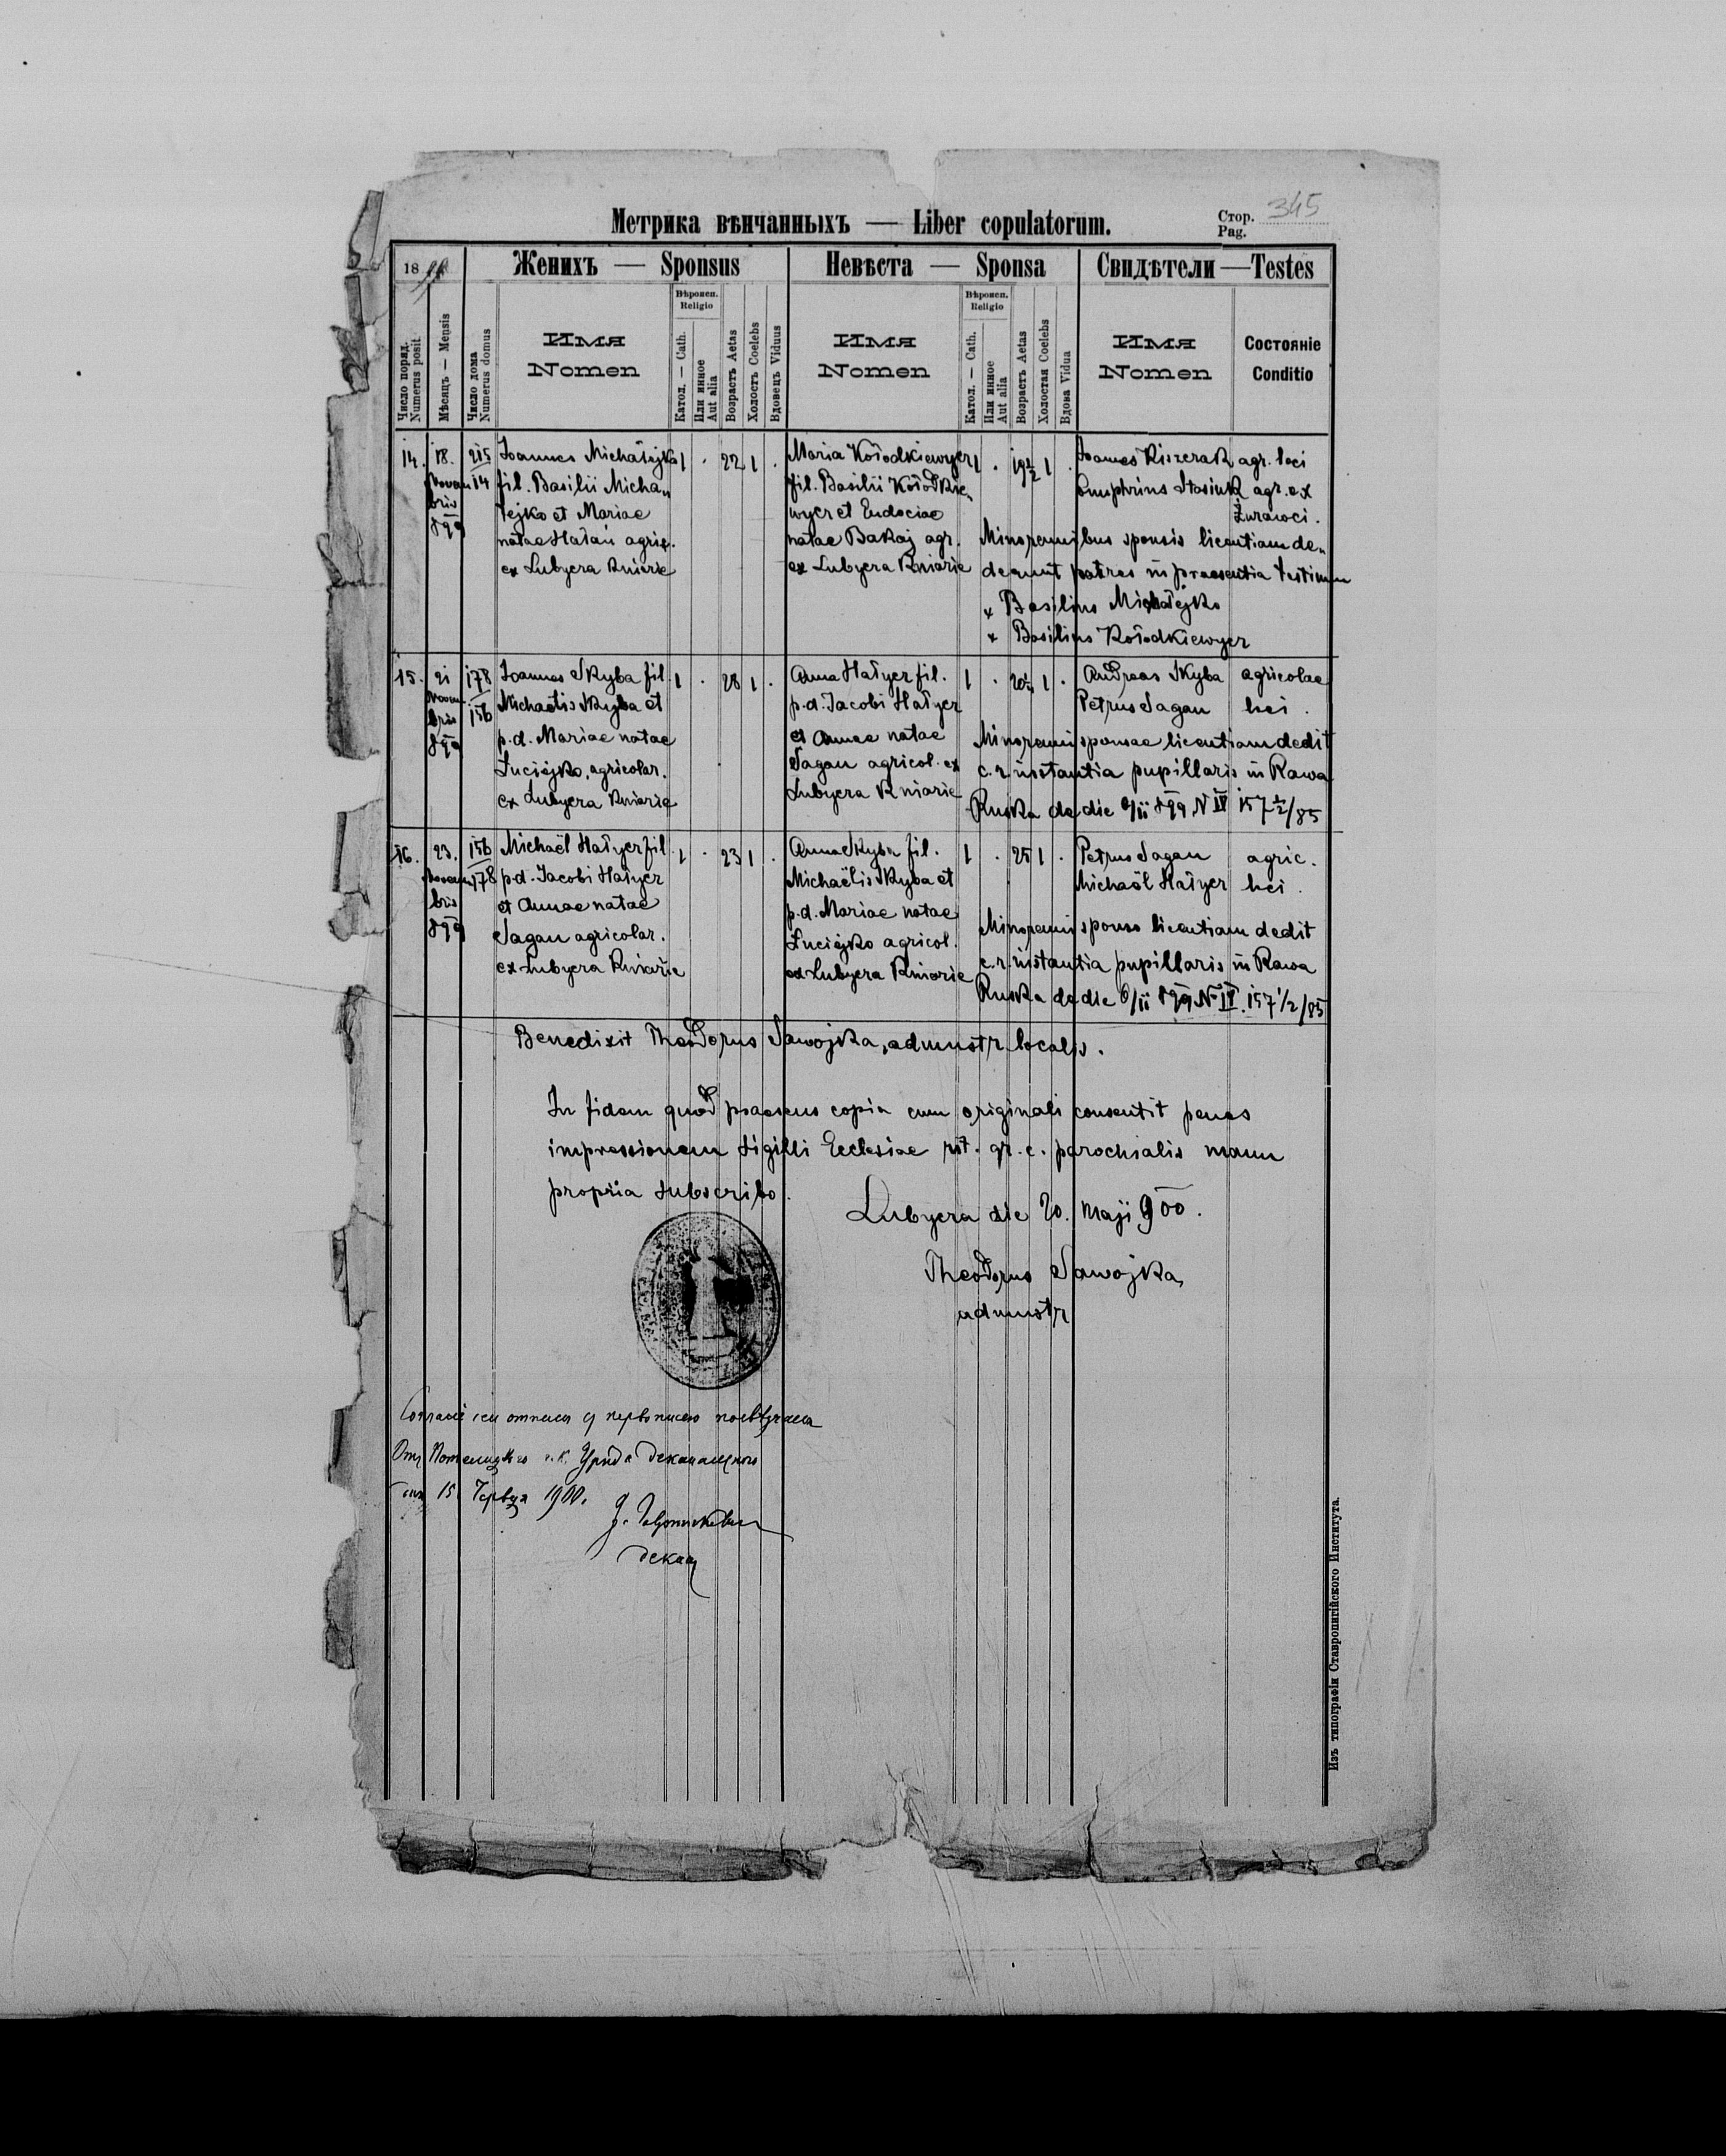 Метрика вѣнчанныхъ — Liber copulatorum.
Стор. 345
Pag.
18 99
Женихъ — Sponsus
Невѣста — Sponsa
Свидѣтели — Testes
Число поряд.
Numerus posit
Мѣсяцъ — Mensis
Число дома
Numerus domus
Имя
Nomen
Вѣроисп.
Religio
Катол. — Cath.
Или инное
Aut alia
Возрастъ Aetas
Холостъ Coelebs
Вдовецъ Viduus
Имя
Nomen
Вѣроисп.
Religio
Катол. — Cath.
Или инное
Aut alia
Возрастъ Aetas
Холостая Coelebs
Вдова Vidua
Имя
Nomen
Состояніе
Conditio
14. 18. Novembris 899 215/14
Joannes Michałejko
fil. Basilii Micha„
łejko et Mariae
natae Hałań agric.
ex Lubycza Kniazie
1 . 22 1 .
Maria Kołodkiewycz
fil. Basilii Kołodkie„
wycz et Eudociae
natae Bakaj agr.
ex Lubycza Kniazie
1 . 19½ 1 .
Joannes Kiszczak agr. loci
Onuphrius Stasiuk agr. ex
Żurawci.
Minorennibus sponsis licentiam de„
derunt patres in praesentia testium
+ Basilius Michałejko
+ Basilius Kołodkiewycz
15. 21 Novembris 899 178/156
Joannes Skyba fil.
Michaelis Skyba et
p.d. Mariae natae
Łuciejko, agricolar.
ex Lubycza Kniazie
1 . 28 1 .
Anna Hałycz fil.
p.d. Jacobi Hałycz
et Annae natae
Sagan agricol. ex
Lubycza Kniazie
1 . 20½ 1 .
Andreas Skyba agricolae
Petrus Sagan loci.
Minorenni sponsae licentiam dedit
c.r. instantia pupillaris in Rawa
Ruska de die 6/11 899 N IV 157½/85
16. 23. Novembris 899 156/178
Michaël Hałycz fil.
p.d. Jacobi Hałycz
et Annae natae
Sagan agricolar.
ex Lubycza Kniazie
1 . 23 1 .
Anna Skyba fil.
Michaëlis Skyba et
p.d. Mariae natae
Łuciejko agricol.
ex Lubycza Kniazie
1 . 25 1 .
Petrus Sagan agric.
Michaël Hałycz loci.
Minorenni sponso licentiam dedit
c.r. instantia pupillaris in Rawa
Ruska de die 6/11 899 No IV. 157 1/2/85
Benedixit Theodorus Sawojka, admnstr. localis.
In fidem quod praesens copia cum originali consentit penes
impressionem sigilli Ecclesiae rit. gr. c. parochialis manu
propria subscribo.
Lubycza die 20. Maji 900.
Theodorus Sawojka,
admnstr
отписи съ первописею
Отъ Уряда деканального
15 Червця 1900.
деканъ
Изъ типографіи Ставропигійского Института.